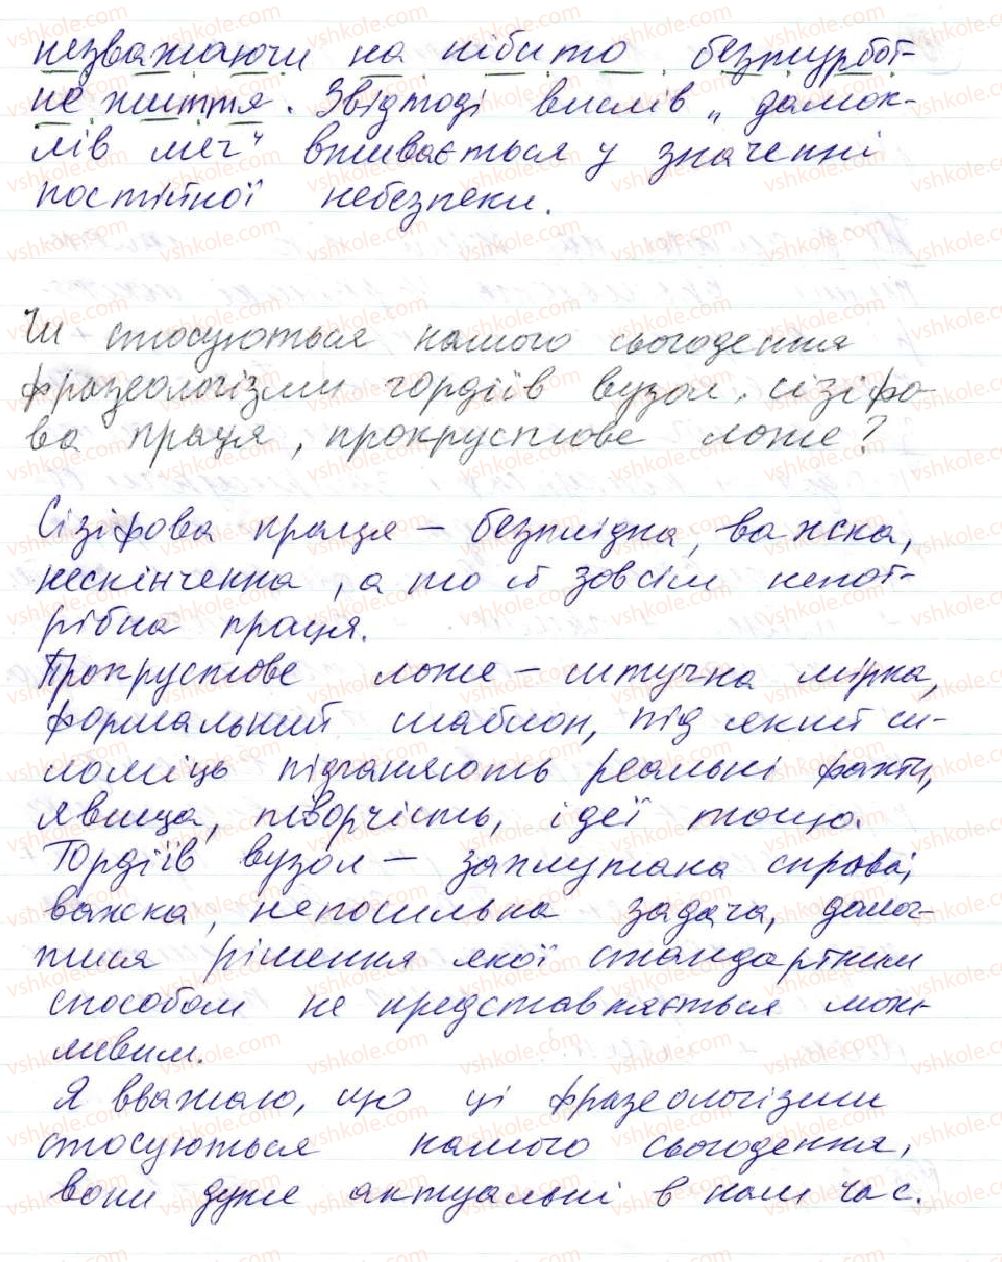 незважаючи на нібито безтурбот-
не життя. Звідтоді вислів „дамок-
лів меч“ вживається у значенні
постійної небезпеки.
Чи стосуються нашого сьогодення
фразеологізми гордіїв вузол, сізіфо-
ва праця, прокрустове ложе?
Сізіфова праця – безплідна, важка,
нескінченна, а то й зовсім непот-
рібна праця.
Прокрустове ложе – штучна мірка,
формальний шаблон, під який си-
ломіць підганяють реальні факти,
явища, творчість, ідеї тощо.
Гордіїв вузол – заплутана справа;
важка, непосильна задача, домог-
тися рішення якої стандартним
способом не представляється мож-
ливим.
Я вважаю, що ці фразеологізми
стосуються нашого сьогодення,
вони дуже актуальні в наш час.